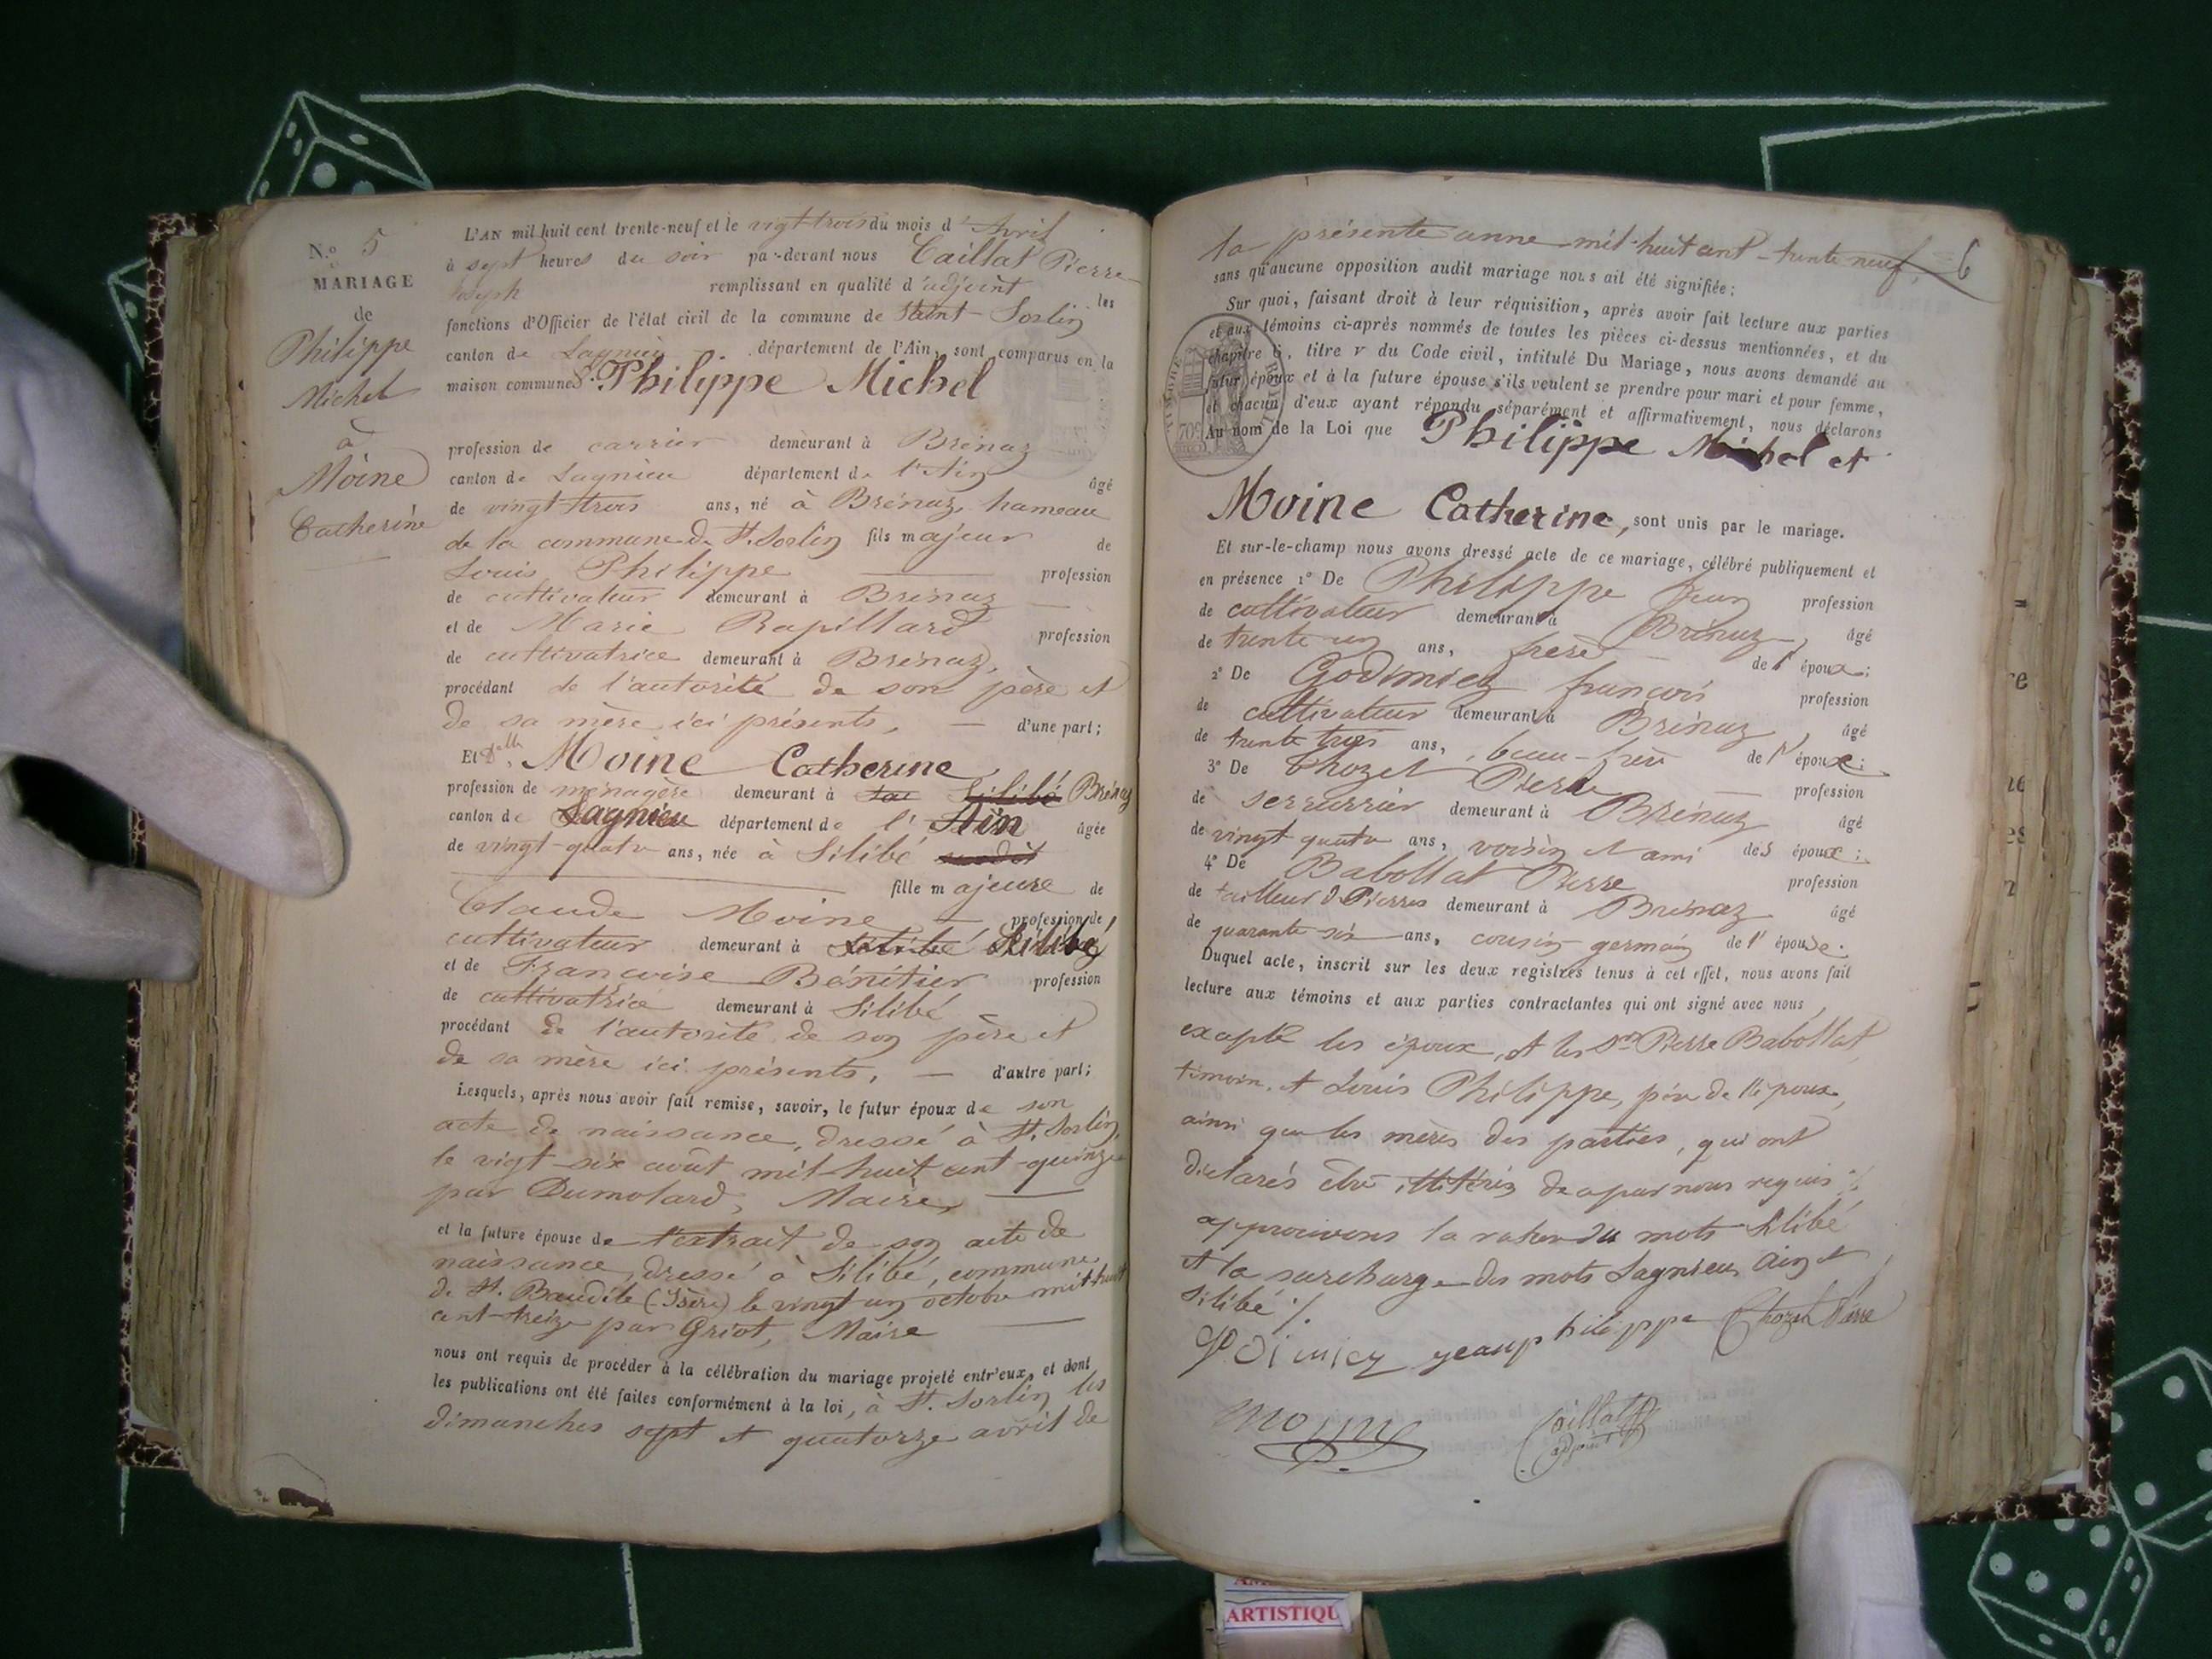 N.º 5
MARIAGE
de
Philippe
Michel
à
Moine
Catherine
L'AN mil huit cent trente-neuf et le vigt-trois du mois d'Avril
à sept heures du soir pa-devant nous Caillat Pierre
Joseph remplissant en qualité d'adjoint les
fonctions d'Officier de l'état civil de la commune de Saint-Sorlin
canton de Lagnieu département de l'Ain, sont comparus en la
maison commune S.r Philippe Michel
profession de carrier demeurant à Brénaz
canton de Lagnieu département de l'Ain âgé
de vingt-trois ans, né à Brénaz, hameau
de la commune de St. Sorlin fils majeur de
Louis Philippe profession
de cultivateur demeurant à Brénaz
et de Marie Rapillard profession
de cultivatrice demeurant à Brénaz,
procédant de l'autorité de son père et
de sa mère ici présents, — d'une part;
Et D.elle Moine Catherine,
profession de ménagère demeurant à Silibé Brénaz
canton de Lagnieu département de l'Ain âgée
de vingt-quatre ans, née à Silibé susdit
fille majeure de
Claude Moine — profession de
cultivateur demeurant à Silibé
et de Françoise Bénitier profession
de cultivatrice demeurant à Silibé
procédant de l'autorité de son père et
de sa mère ici présents, — d'autre part;
Lesquels, après nous avoir fait remise, savoir, le futur époux de son
acte de naissance, dressé à St. Sorlin,
le vigt-six août mil-huit cent-quinze
par Dumolard, Maire,
et la future épouse de l'extrait de son acte de
naissance, dressé à Silibé, commune
de St. Baudile (Isère) le vingt un octobre mil huit
cent-treize par Griot, Maire
nous ont requis de procéder à la célébration du mariage projeté entr'eux, et dont
les publications ont été faites conformément à la loi, à St. Sorlin les
dimanches sept et quatorze avril de
6
la présente anne mil-huit cent-trente-neuf,
sans qu'aucune opposition audit mariage nous ait été signifiée;
Sur quoi, faisant droit à leur réquisition, après avoir fait lecture aux parties
et aux témoins ci-après nommés de toutes les pièces ci-dessus mentionnées, et du
chapitre 6, titre V du Code civil, intitulé Du Mariage, nous avons demandé au
futur époux et à la future épouse s'ils veulent se prendre pour mari et pour femme,
et chacun d'eux ayant répondu séparément et affirmativement, nous déclarons
Au nom de la Loi que Philippe Michel et
Moine Catherine, sont unis par le mariage.
Et sur-le-champ nous avons dressé acte de ce mariage, célébré publiquement et
en présence 1º De Philippe Jean profession
de cultivateur demeurant à Brénaz, âgé
de trente un ans, frère de l'époux;
2º De Godimiez françois profession
de cultivateur demeurant à Brénaz âgé
de trente trois ans, beau-frère de l'époux;
3º De Chozet Pierre profession
de serrurrier demeurant à Brénaz âgé
de vingt quatre ans, voisin et ami des époux;
4º De Babollat Pierre profession
de tailleur de Pierres demeurant à Brénaz âgé
de quarante-six ans, cousin germain de l'épouse.
Duquel acte, inscrit sur les deux registres tenus à cet effet, nous avons fait
lecture aux témoins et aux parties contractantes qui ont signé avec nous,
excepté les époux, et les Srs Pierre Babollat
témoin, et Louis Philippe, père de l'époux,
ainsi que les mères des parties, qui ont
déclarés être illitérés de a par nous requis
approuvons la rature du mots Silibé
et la surcharge des mots Lagnieu, Ain et
Silibé ./.
Godimiez yean philippe Chozet Pierre
Moyne
Caillat
adjoint
TIMBRE ROYAL
70c
ARTISTIQU